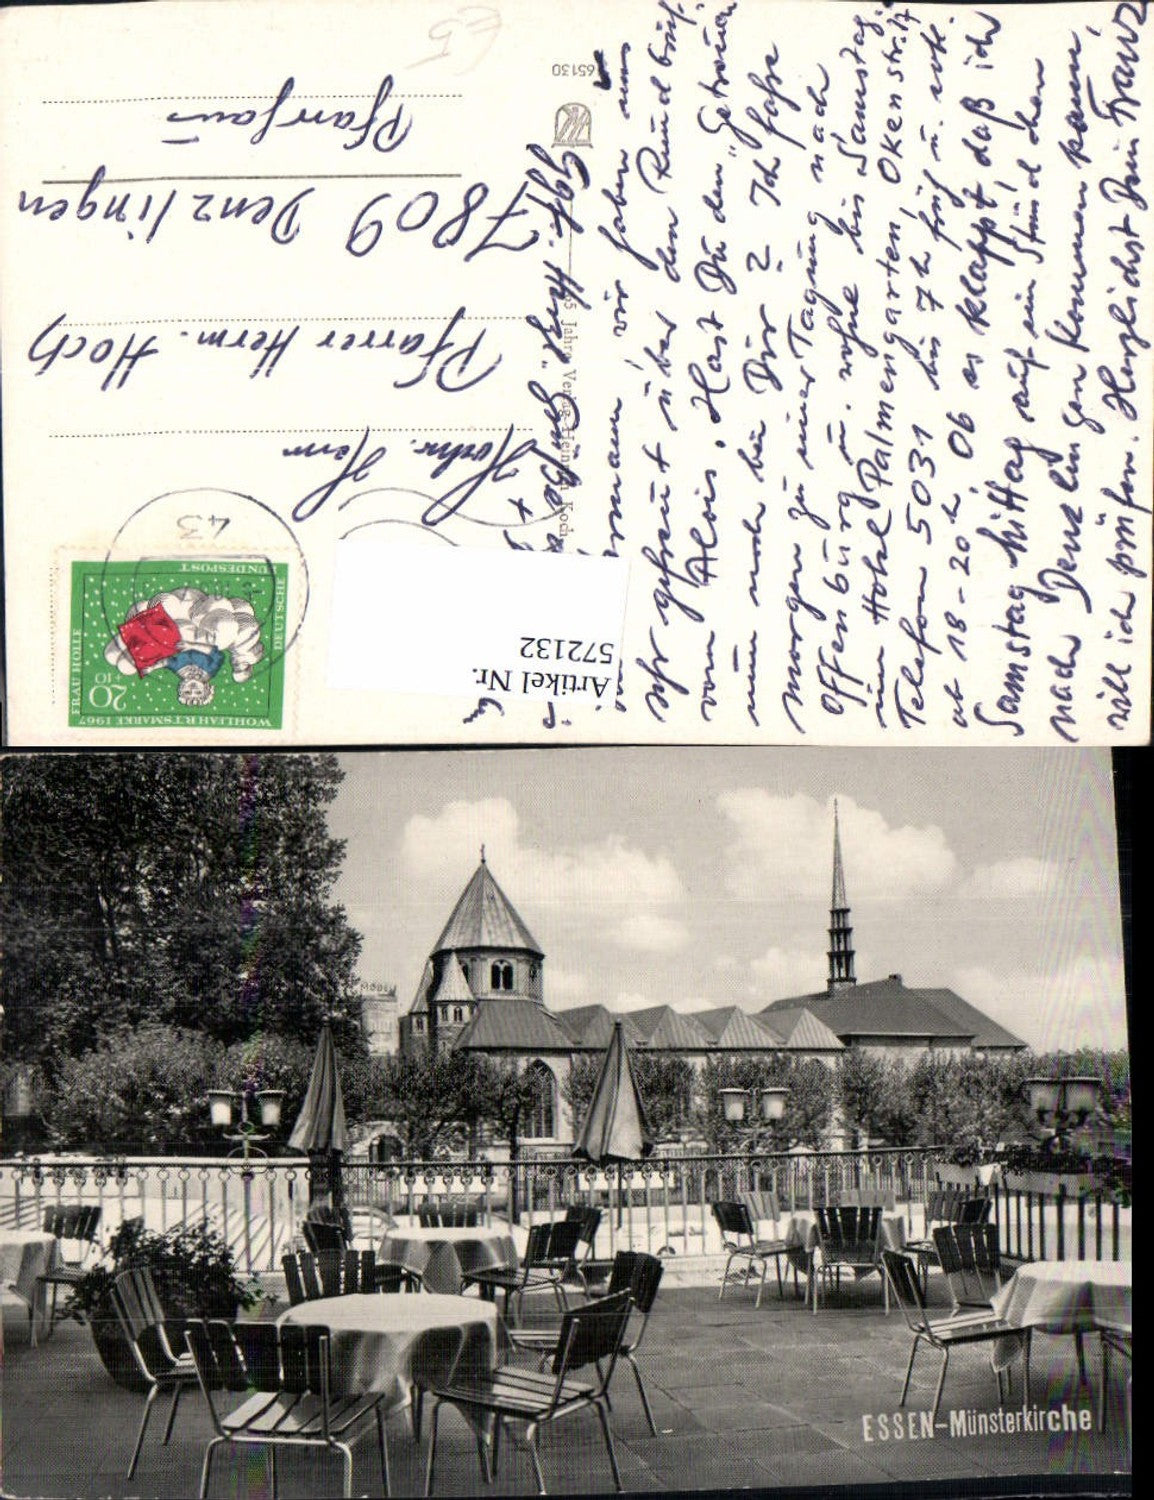 65130
65 Jahre Verlag Heinrich Koch
43
WOHLFAHRTSMARKE 1967
FRAU HOLLE
20
+10
DEUTSCHE
BUNDESPOST
Artikel Nr.
572132
Herrn
Pfarrer Herm. Hoch
7809 Denzlingen
Pfarrhaus
wir haben uns
sehr gefreut über den Rundbrief
vom Alois. Hast Du den "Getreuen
nun noch bei Dir? Ich fahre
morgen zu einer Tagung nach
Offenburg u. wohne bis Samstag
im Hotel Palmengarten, Okenstr. 17
Telefon 5031 bis 7h früh u.
ab 18-20h. Ob es klappt daß ich
Samstag Mittag auf ein Stündchen
nach Denzlingen kommen kann,
will ich prüfen. Herzlichst Dein Franz
ESSEN-Münsterkirche